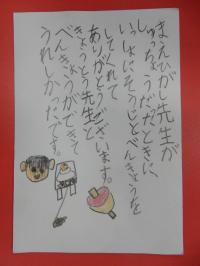 まえひがし先生が
しゅっちょうだったときに、
いっしょにそうじとべんきょうを
してくれて
ありがとうございます。
きょうとう先生と
べんきょうができて
うれしかったです。